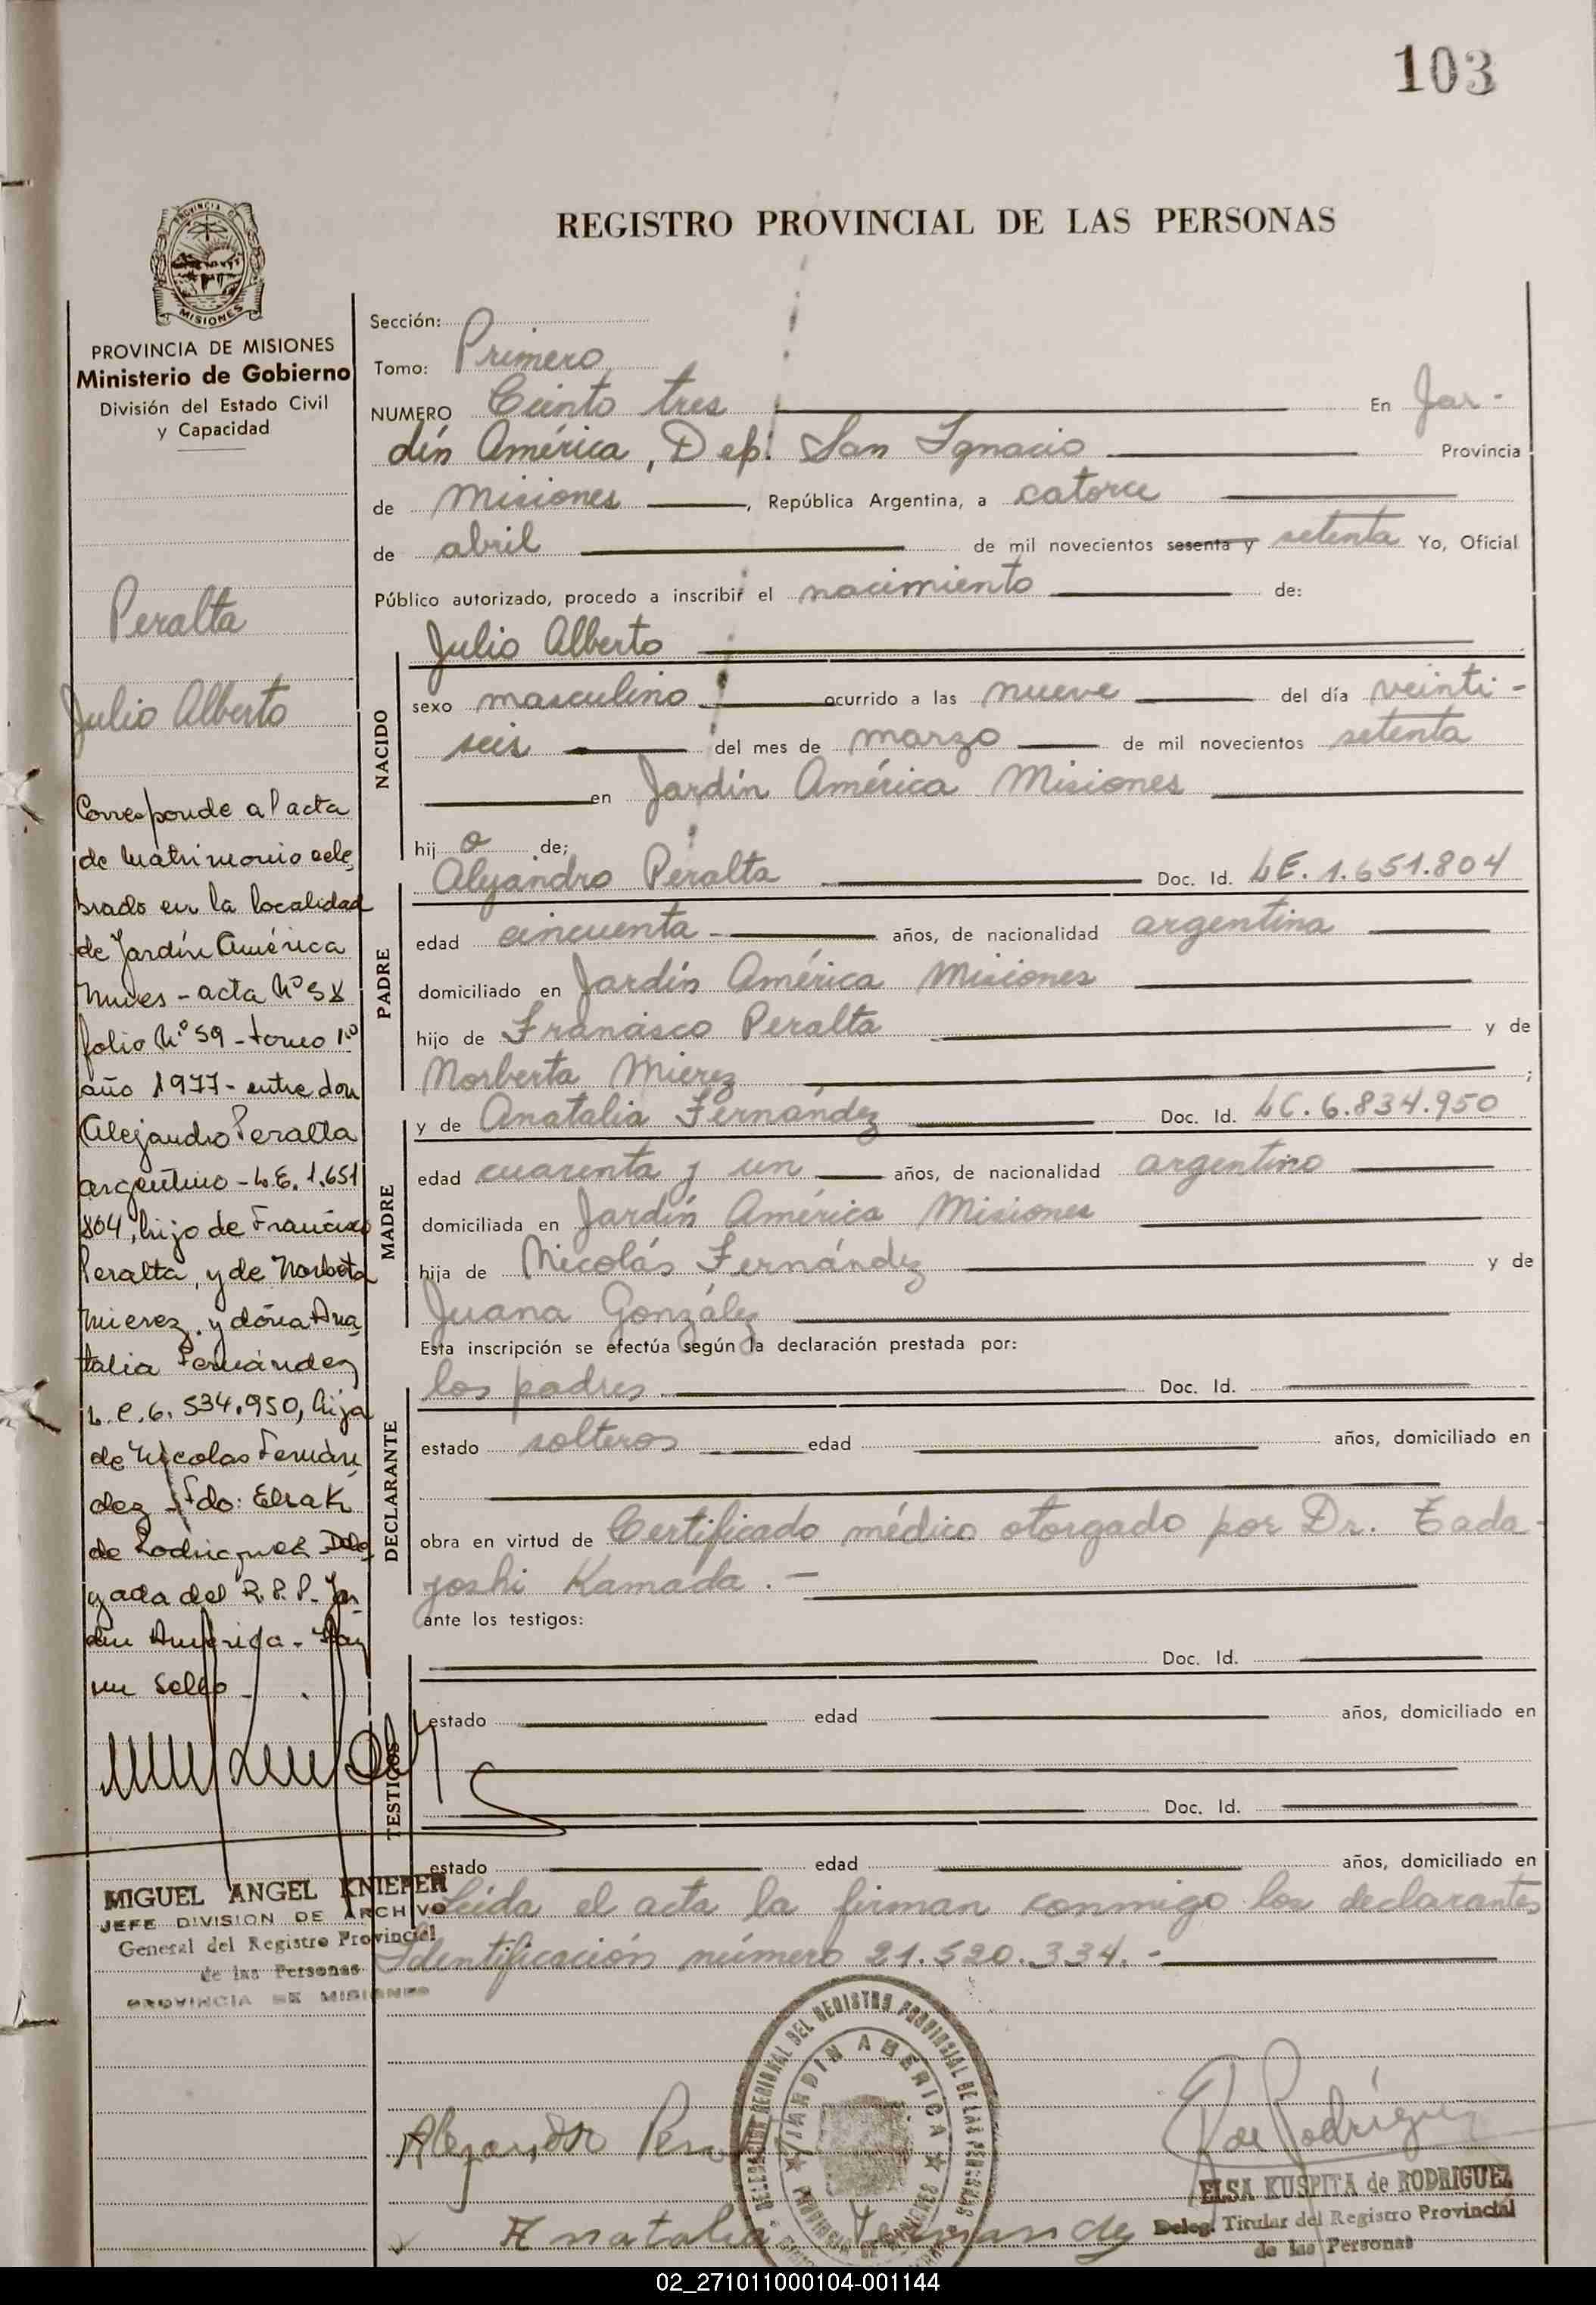 103
REGISTRO PROVINCIAL DE LAS PERSONAS
PROVINCIA DE
MISIONES
PROVINCIA DE MISIONES
Ministerio de Gobierno
División del Estado Civil
y Capacidad
Peralta
Julio Alberto
Corresponde al acta
de matrimonio cele
brado en la localidad
de Jardín América
Mnes - acta Nº 58
folio Nº 59 - tomo 1º
año 1977 - entre don
Alejandro Peralta
argentino - L.E. 1.651
804, hijo de Francisco
Peralta, y de Norbeta
Mierez y doña Ana
talia Fernández
L.C. 6.534.950, hija
de Nicolas Fernán
dez - Fdo: Elsa K
de Rodriguez Dele
gada del R.P.P. Jar
din América - Hay
un sello
MIGUEL ANGEL KNIEPER
JEFE DIVISION DE ARCHIVO
General del Registro Provincial
de las Personas
PROVINCIA DE MISIONES
Sección:
Tomo: Primero
NUMERO Ciento tres En Jar-
dín América, Dep. San Ignacio Provincia
de Misiones, República Argentina, a catorce
de abril de mil novecientos sesenta y setenta Yo, Oficial
Público autorizado, procedo a inscribir el nacimiento de:
Julio Alberto
NACIDO
sexo masculino ocurrido a las nueve del día veinti-
seis del mes de marzo de mil novecientos setenta
en Jardín América Misiones
hij o de;
Alejandro Peralta Doc. Id. LE. 1.651.804
PADRE
edad cincuenta años, de nacionalidad argentina
domiciliado en Jardín América Misiones
hijo de Francisco Peralta y de
Norberta Mierez ;
y de Anatalia Fernández Doc. Id. LC. 6.834.950
MADRE
edad cuarenta y un años, de nacionalidad argentino
domiciliada en Jardín América Misiones
hija de Nicolás Fernández y de
Juana González
Esta inscripción se efectúa según la declaración prestada por:
los padres Doc. Id.
DECLARANTE
estado solteros edad años, domiciliado en
obra en virtud de Certificado médico otorgado por Dr. Tada-
yoshi Kamada.-
ante los testigos:
Doc. Id.
TESTIGOS
estado edad años, domiciliado en
Doc. Id.
estado edad años, domiciliado en
Leída el acta la firman conmigo los declarantes
Identificación número 21.520.334.-
DELEGACION REGIONAL DEL REGISTRO PROVINCIAL DE LAS PERSONAS
JARDIN AMERICA
PROVINCIA DE MISIONES
Alejandro Peralta
Anatalia Fernandez
de Rodríguez
ELSA KUSPITA de RODRIGUEZ
Deleg. Titular del Registro Provincial
de las Personas
02_271011000104-001144